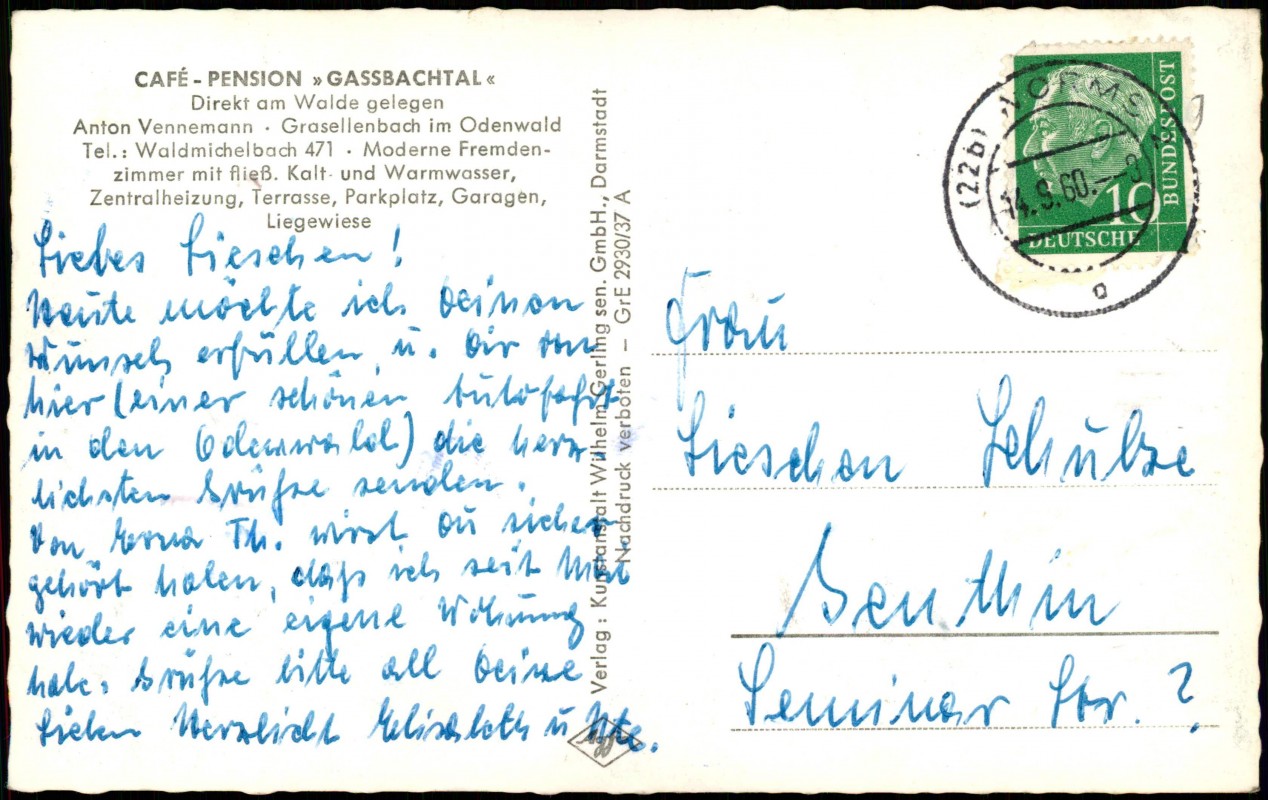 CAFÉ - PENSION »GASSBACHTAL«
Direkt am Walde gelegen
Anton Vennemann · Grasellenbach im Odenwald
Tel.: Waldmichelbach 471 · Moderne Fremden-
zimmer mit fließ. Kalt- und Warmwasser,
Zentralheizung, Terrasse, Parkplatz, Garagen,
Liegewiese
Liebes Lieschen!
Heute möchte ich Deinen
Wunsch erfüllen u. Dir von
hier (einer schönen Autofahrt
in den Odenwald) die herz
lichsten Grüße senden.
Von Erna Th. wirst Du sicher
gehört haben, daß ich seit Mai
wieder eine eigene Wohnung
habe. Grüße bitte all Deine
Lieben Herzlichst Elisabeth u Ute.
Verlag: Kunstanstalt Wilhelm Gerling sen. GmbH., Darmstadt
Nachdruck verboten — GrE 2930/37 A
(22b) WORMS
14.9.60.
a
10
DEUTSCHE
BUNDESPOST
Frau
Lieschen Schulze
Genthin
Seminar Str. ?